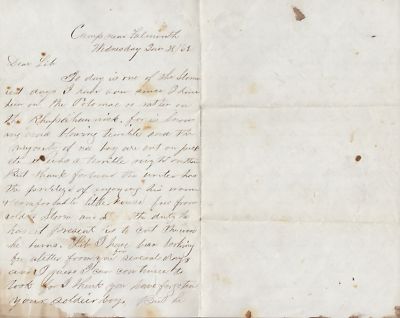 Camp near Falmouth
Wednesday Jan 28/63
Dear Lib
To day is one of the storm
iest days I have seen since I have
been on the Potomac or rather on
the
and blowing terrible and the
majority of our boys are out on pick
et a terrible night
But thank fortune the writer has
the privilege of enjoying his warm
& comfortable little house free from
cold & storm and the duty he
has at present is to
he burns. Lib I have been looking
for a letter from you several days
and I guess I can continue to
look for I think you have forgotten
your soldier boy. But